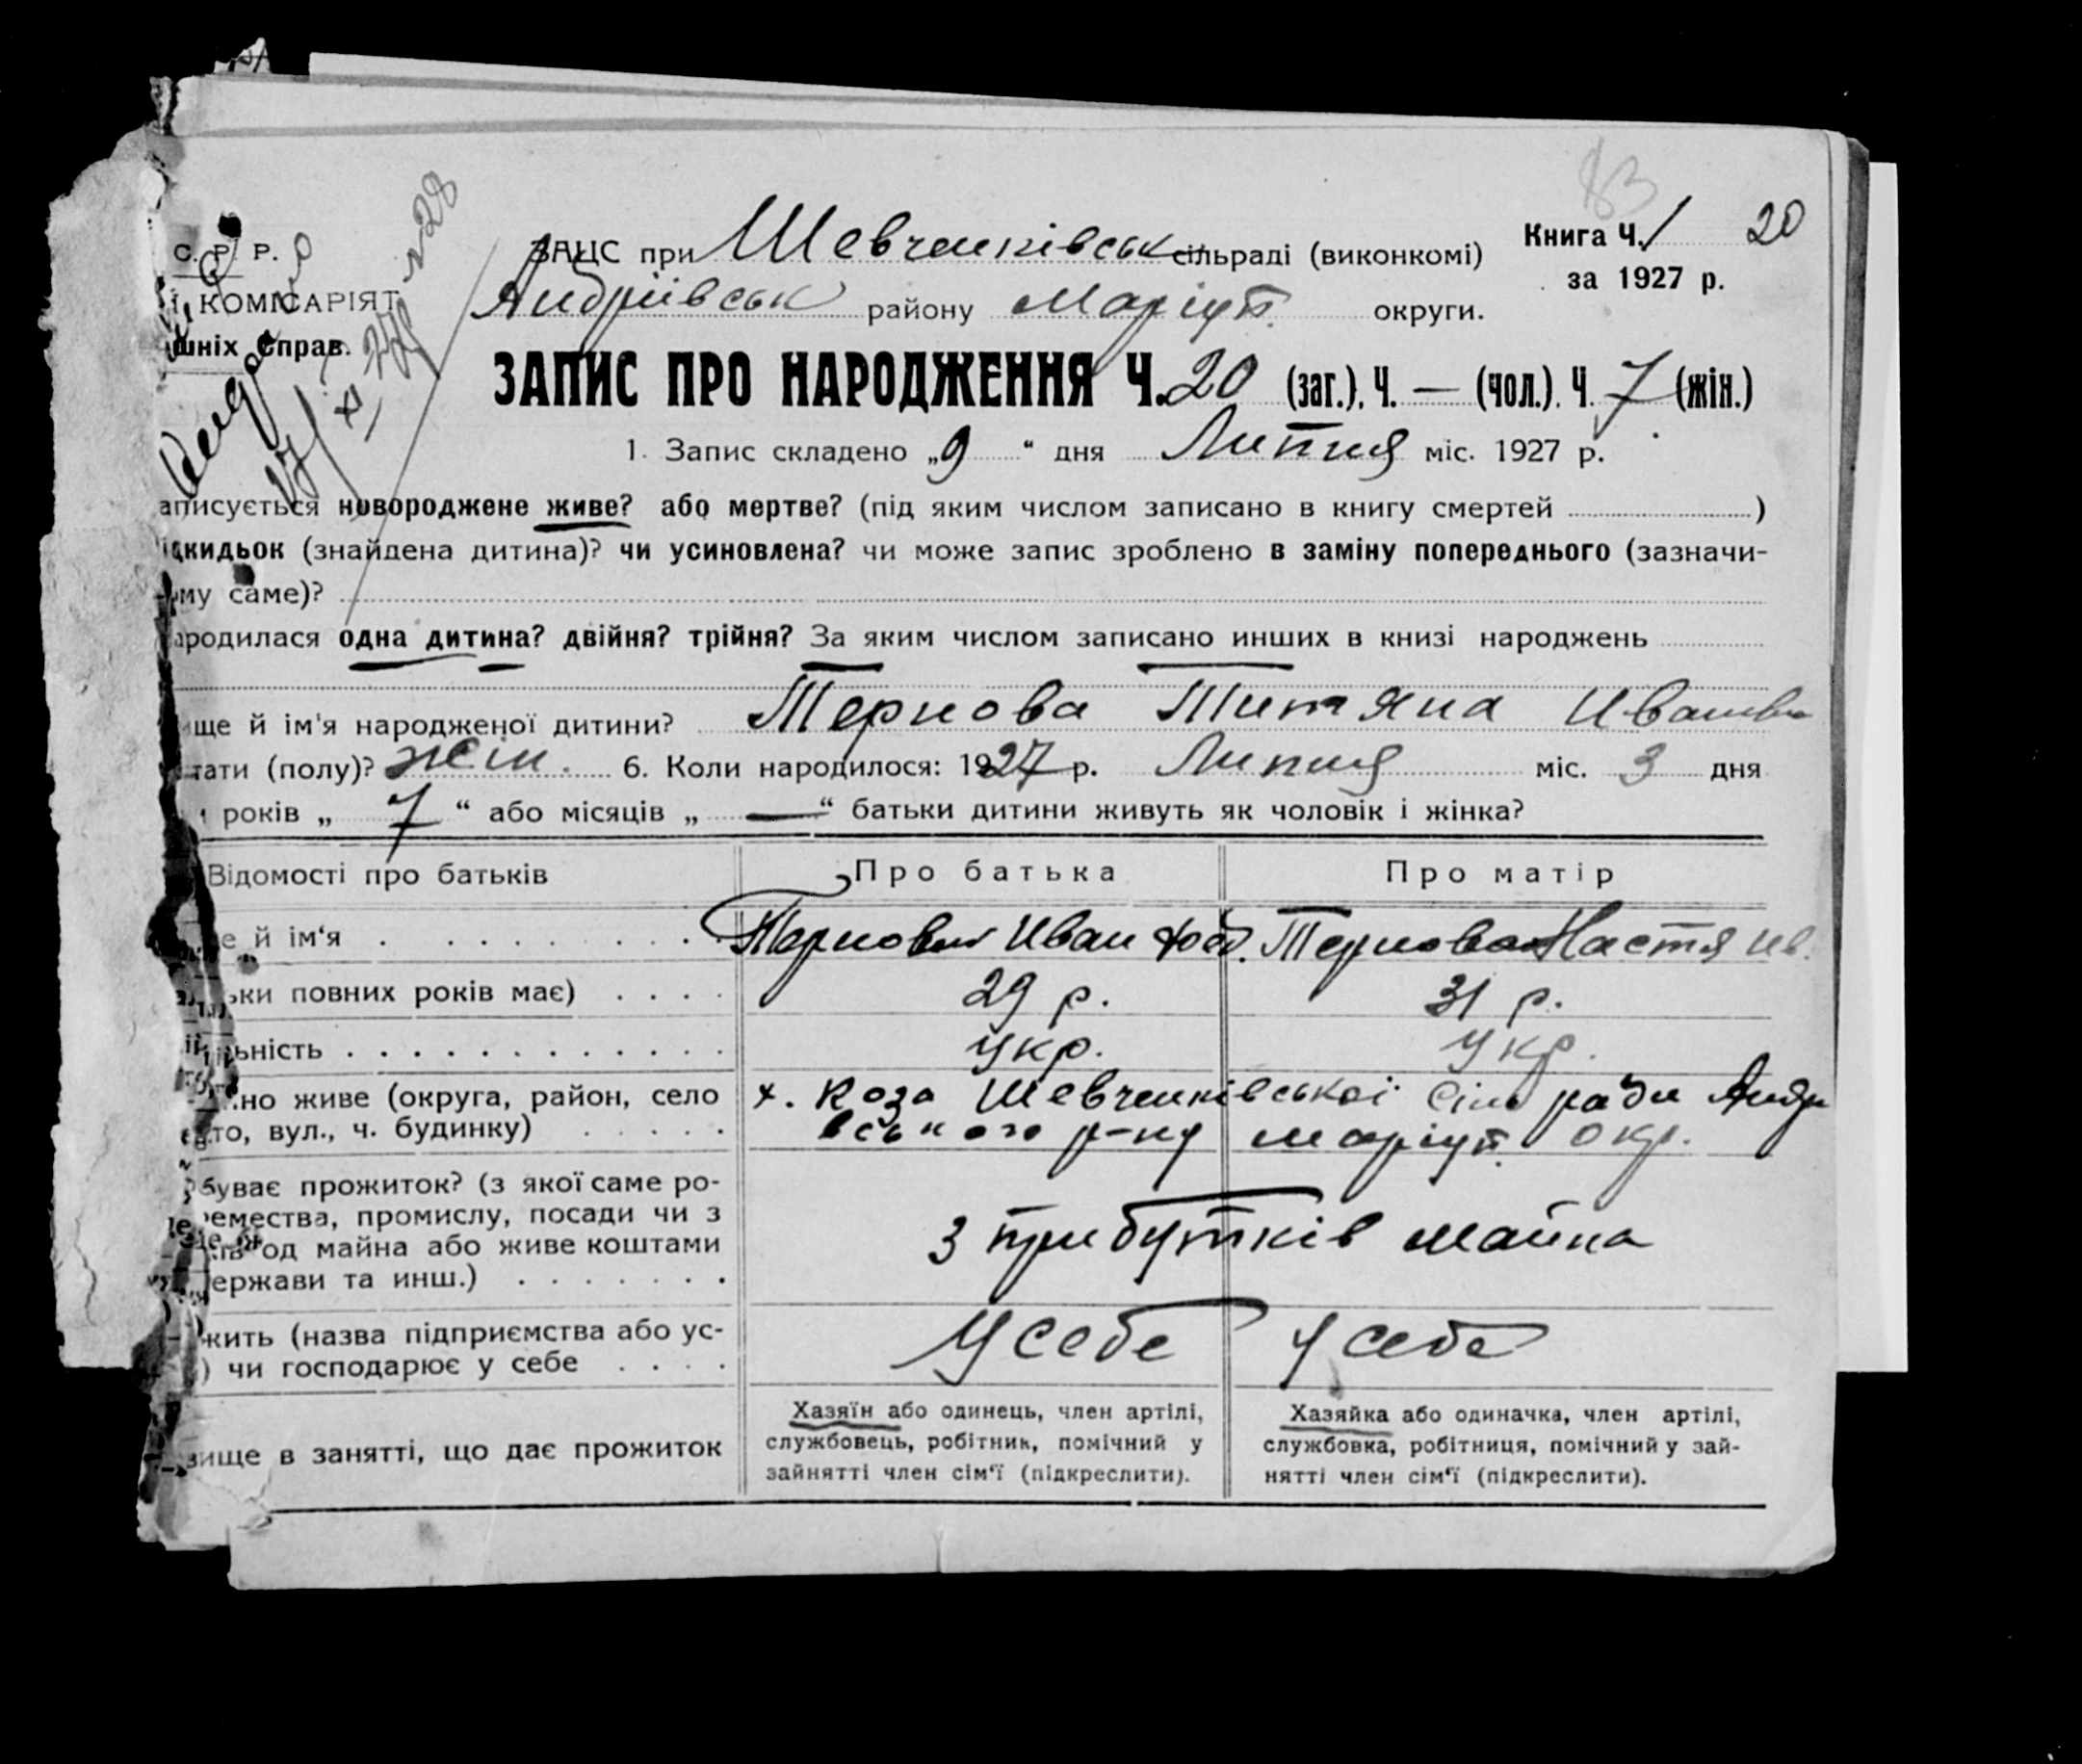 83
С. Р. Р.
ЗАЦС при Шевченківськ сільраді (виконкомі)
Книга Ч. 1 20
за 1927 р.
КОМІСАРІЯТ
Андріївськ району Маріуп. округи.
шніх Справ.
ЗАПИС ПРО НАРОДЖЕННЯ Ч. 20 (заг.). Ч. — (чол.). Ч. 7 (жін.)
1. Запис складено „9“ дня Липня міс. 1927 р.
аписується новороджене живе? або мертве? (під яким числом записано в книгу смертей )
ідкидьок (знайдена дитина)? чи усиновлена? чи може запис зроблено в заміну попереднього (зазначи-
ому саме)?
ародилася одна дитина? двійня? трійня? За яким числом записано инших в книзі народжень
ище й ім'я народженої дитини? Тернова Титяна Ивановн
тати (полу)? жін. 6. Коли народилося: 1927 р. Липня міс. 3 дня
років „ 7 “ або місяців „ — “ батьки дитини живуть як чоловік і жінка?
Відомості про батьків Про батька Про матір
е й ім‘я Терновий Иван Фед. Тернова Настя Ив.
ьки повних років має) 29 р. 31 р.
ьність Укр. Укр.
но живе (округа, район, село х. Коза Шевченківської Сіль ради Андр
то, вул., ч. будинку) вського р-ну Маріуп. окр.
буває прожиток? (з якої саме ро-
емества, промислу, посади чи з
ів од майна або живе коштами З прибутків майна
ержави та инш.)
жить (назва підприємства або ус-
) чи господарює у себе У себе У себе
Хазяїн або одинець, член артілі, Хазяйка або одиначка, член артілі,
вище в занятті, що дає прожиток службовець, робітник, помічний у службовка, робітниця, помічний у зай-
зайнятті член сім‘ї (підкреслити). нятті член сім‘ї (підкреслити).